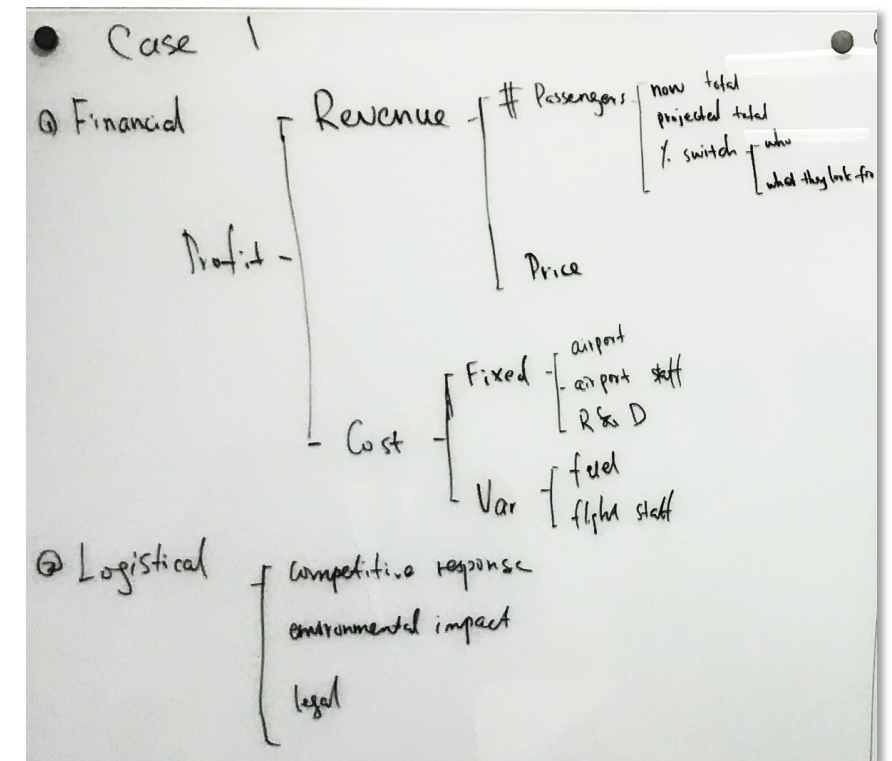 Case 1
① Financial
Revenue
# Passengers
now total
projected total
% switch
who
what they look for
Profit
Price
Fixed
airport
airport staff
R & D
Cost
Var
fuel
flight staff
② Logistical
competitive response
environmental impact
legal